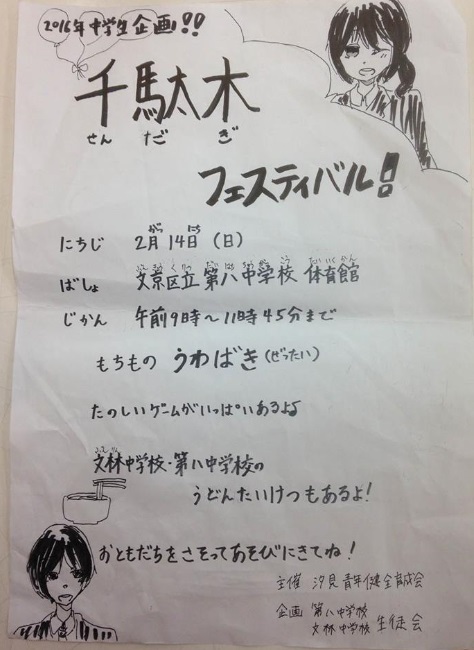 2016年中学生企画!!
千駄木
せんだぎ
フェスティバル!!
にちじ 2月14日(日)
がつ にち
ばしょ 文京区立第八中学校 体育館
ぶんきょうくりつだいはちちゅうがっこう たいいくかん
じかん 午前9時〜11時45分まで
もちもの うわばき(ぜったい)
たのしいゲームがいっぱいあるよ♪
文林中学校・第八中学校の
ぶんりん
うどんたいけつもあるよ!
おともだちをさそってあそびにきてね!
主催 汐見青年健全育成会
企画 第八中学校
文林中学校 生徒会